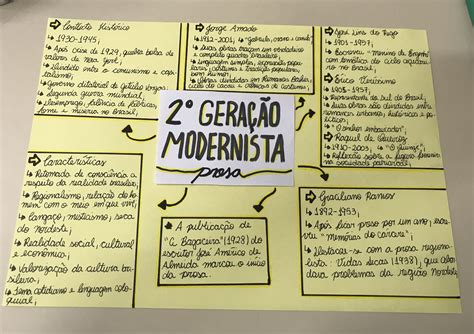 Contexto Histórico
↳ 1930-1945;
↳ Após crise de 1929, quebra bolsa de
valores de Nova York;
↳ Divididas entre o comunismo e capi-
talismo;
↳ Governo ditatorial de Getúlio Vargas;
↳ Segunda guerra mundial;
↳ Desemprego, falência de fábricas,
fome e miséria no Brasil;
Jorge Amado
↳ 1912-2001; ↳ "Gabriela, cravo e canela"
↳ Suas obras traçam um verdadeiro
e completo quadro brasileiro;
↳ Linguagem simples, expressões popu-
lares, cultura e tradição populares,
bom humor;
↳ Obras divididas em Romances Brasilei-
ciclo do cacau e crônicas de costumes;
José Lins do Rego
↳ 1901-1957;
↳ Escreveu "Menino de Engenho"
com temática do ciclo açucarei-
ro no Brasil;
Érico Veríssimo
↳ 1905-1975;
↳ Representante do sul do Brasil;
↳ Suas obras são divididas entre
romances urbanos, históricos e po-
líticos;
↳ "O senhor embaixador"
Raquel de Queiroz
↳ 1910-2003; ↳ "O quinze";
↳ Reflexão sobre a figura feminina
sociedade patriarcal;
2° GERAÇÃO
MODERNISTA
prosa
Características
↳ Retomada de consciência a
respeito da realidade brasileira;
↳ Regionalismo, relação do ho-
mem com o meio em que vive;
↳ Cangaço, misticismo, seca
do Nordeste;
↳ Realidade social, cultural
e econômica;
↳ Valorização da cultura bra-
sileira;
↳ Tema cotidiano e linguagem colo-
quial;
↳ A publicação de
"A Bagaceira" (1928) do
escritor José Américo de
Almeida marcou o início
da prosa.
Graciliano Ramos
↳ 1892-1953;
↳ Após ficar preso por um ano, escre-
veu "Memórias do cárcere";
↳ Destacou-se com a prosa regiona-
lista: Vidas secas (1938), que abor-
dava problemas da região Nordeste